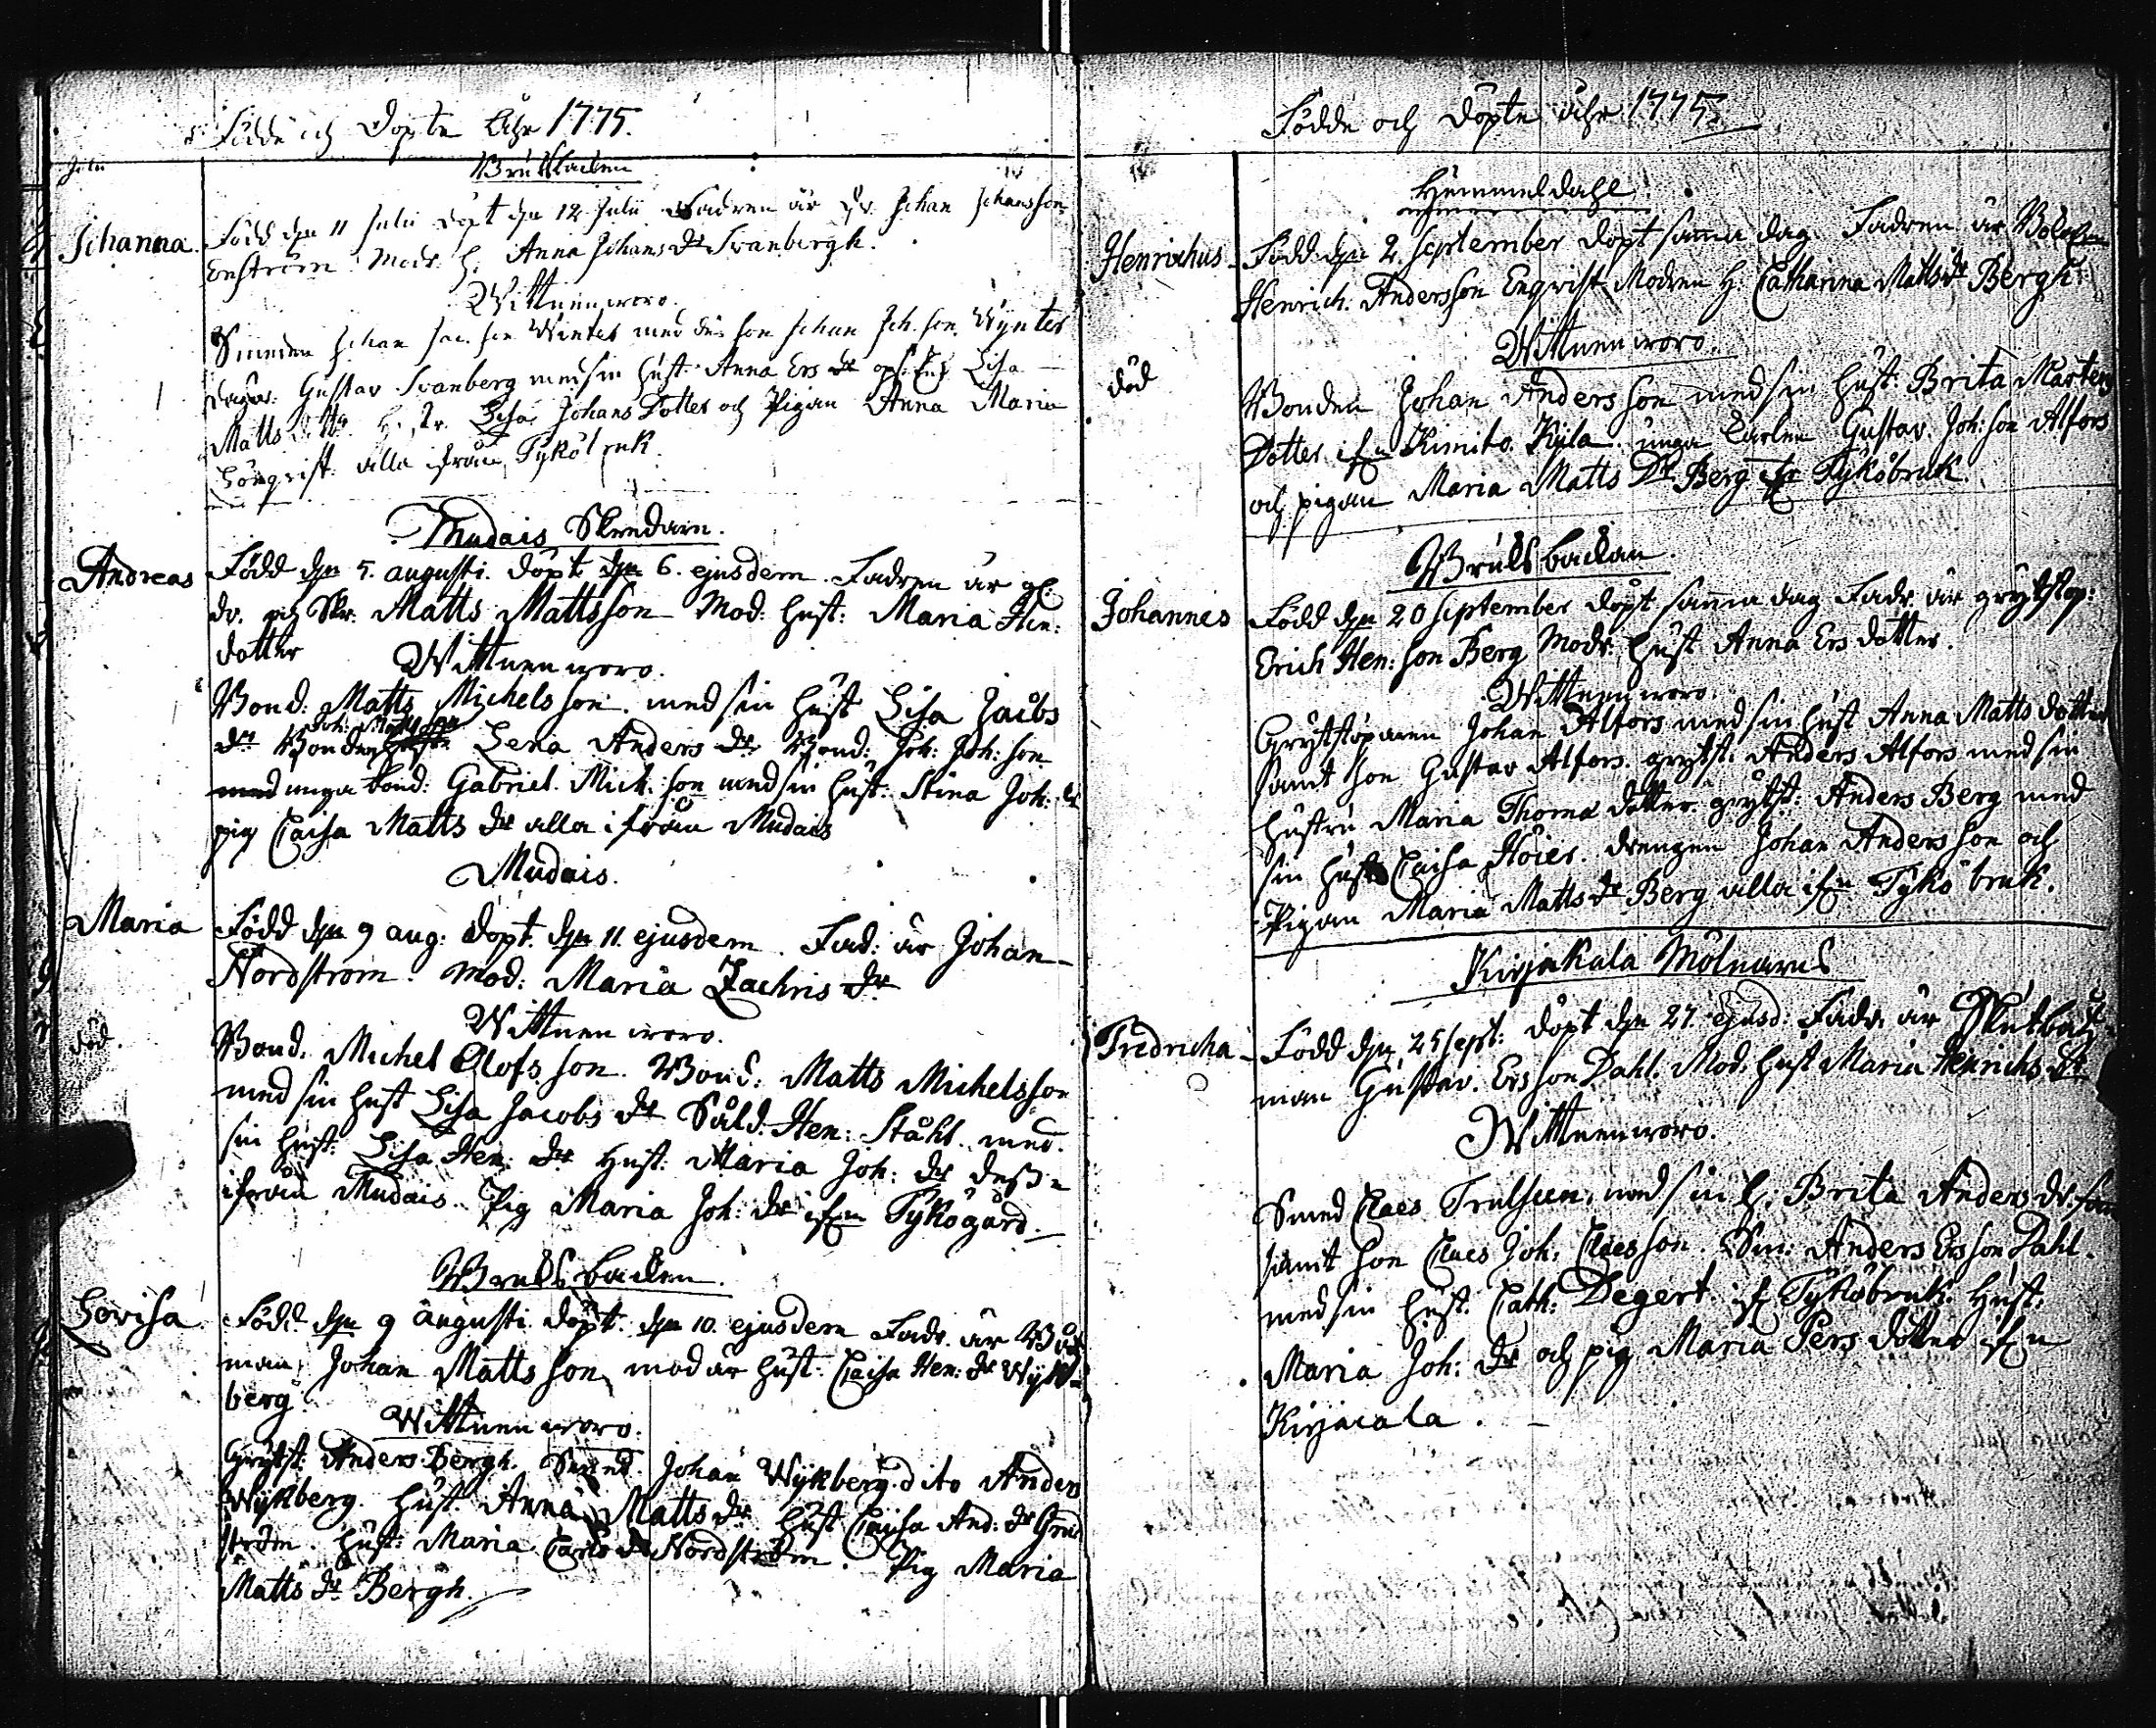 Födde och Döpte Åhr 1775.
Julii
Bruksbacken
Johanna. Född dn 11 Julii döpt dn 12 Julii Fadren är Johan Johansson
Enström Modr. h. Anna Johans dr Svanbergh.
Wittnen woro.
Smeden Johan Jac. son Winter med des son Johan Joh. son Wynter
Gustav Svanberg med sin hust. Anna Ers dr Lisa
Matts Lisa Johans Dotter och Pigan Anna Maria
Lönqvist alla ifrån Tykö bruk.
Mudais Skredare.
Andreas Född dn 5. augusti. döpt dn 6. ejusdem. Fadren är gl.
dr. och Skr. Matts Mattsson Mod: hust: Maria Hen:
dotter Wittnen woro.
Bond: Matts Michelsson. med sin hust Lisa Jacobs
Joh: Mattsson
dr Bonden hustr Lena Anders dr Bond: Joh: Joh: son
med unga bond: Gabriel. Mich: son med sin hust: Stina Joh: dr
pig Caisa Matts dr alla ifrån Mudais
Mudais.
Maria Född dn 9 aug: döpt. dn 11. ejusdem. Fad: är Johan
Nordström. Mod: Maria Zachris dr
Wittnen woro.
död. Bond. Michel Olofs son. Bond: Matts Michelsson
med sin hust Lisa Jacobs dr Såld. Hen: Ståhl. med
sin hust: Lisa Hen: dr Hust: Maria Joh: dr dess=
ifrån Mudais. Pig Maria Joh: dr ifrn Tykögård.
Bruks backen.
Lovisa Född dn 9 augusti. döpt. dn 10. ejusdem Fadr. är
man Johan Matts son, mod är hust: Caisa Hen: dr Wyk=
berg.
Wittnen woro.
Grytst: Anders Bergh. Smed. Johan Wykberg. dito Anders
Wykberg. hust Anna Matts dr. hust Caisa And: dr
ström. hust: Maria Carls dr Nordström. Pig Maria
Matts dr Bergh.
Födde och Döpte åhr 1775.
Hemmeldahl
Henrichus Född dn 2. September döpt samma dag. Fadren är
Henrich. Andersson Enqvist Modren h. Catharina Matts dr Bergh.
Wittnen woro.
död Bonden Johan Andersson med sin hust: Brita Mårtens
Dotter ifrn Kimito Kyla. unga Carlen Gustav Joh: son Alfors
och pigan Maria Matts Dr Berg ifr Tyköbruk.
Bruksbackan.
Johannes Född dn 20 September döpt samma dag Fadr. är grytstöp:
Erich Hen: son Berg Modr. hust Anna Ers dotter.
Wittnen woro.
Grytstöparen Johan Alfors med sin hust Anna Matts dotter
samt son Gustav Alfors. grytst: Anders Alfors med sin
hustru Maria Thomæ dotter. grytst: Anders Berg med
sin hust Caisa Höier. drengen Johan Andersson och
Pigan Maria Matts dr Berg alla ifrn Tykö bruk.
Kirjakala Mölnarns
Fredricha Född dn 25 Sept: döpt dn 27. ejusd: Fadr. är Skutbåtz
man Gustav. Ersson Dahl. Mod. hust Maria Henrichs Dr
Wittnen woro.
Smed Claes Trulsuen, med sin h. Brita Anders dr.
samt son Claes Joh: Claesson. Sm: Anders Ersson Dahl.
med sin hust. Cath: Degert. ifr Tyköbruk. Hust:
Maria Joh: dr och pig Maria Pers dotter ifrn
Kirjacala.